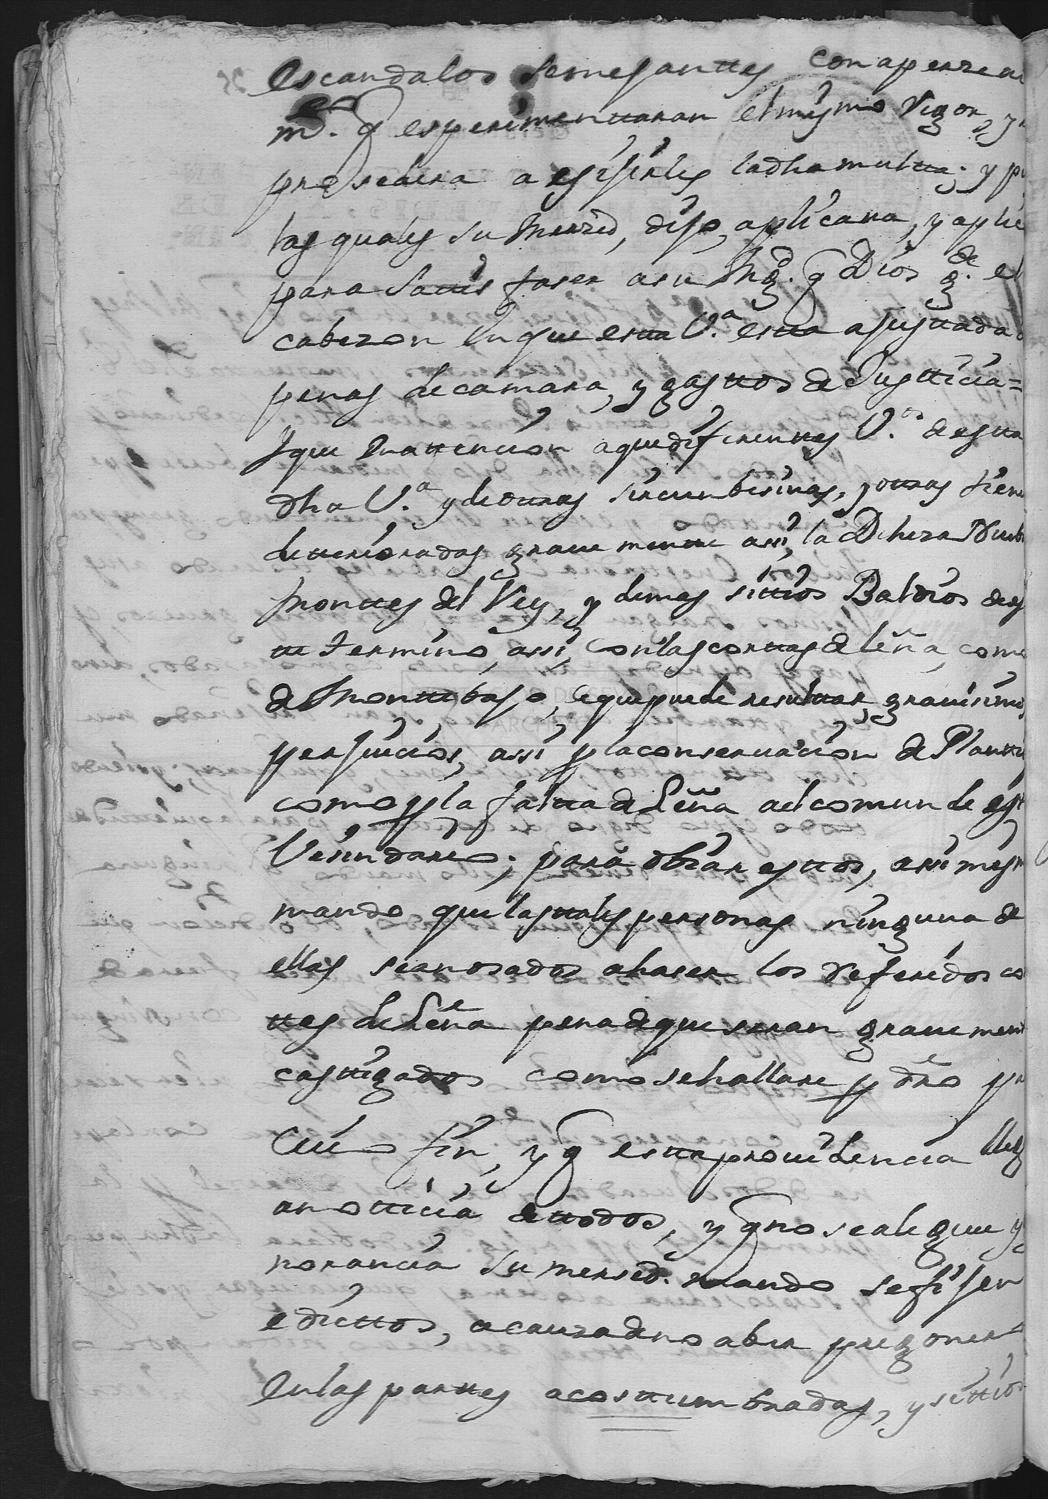 escandalos semejanttes con aperzeui
mto. q esperimenttaran el mysmo rigor, y
prosedera a esijirles la dha multta; y p
las quales su merzed, dijo, aplicava, y aplic
para sattisfaser a su Mgd. q Dios gde. el
cabezon en que estta Va. estta ajusttada
penas de camara, y gasttos de Justticia =
Y que en attencion a que diferenttes Vos. de estta
dha Va. y de ottras sircunbesinas, y ottras tien
detterioradas grauementte assi, la Dehesa
Monttes del Rey, y demas sittios Baldios de es
te termino, assi, con las corttas de leña, como
de Montte bajo, de que puede resulttar, grauisimos
perjuicios, assi p la conseruacion de Plantta
como p la faltta de Leña al comun de estte
Vesindario; para obiar esttos, assi mesmo
mando que las tales personas ninguna de
ellas sean osados a haser los referidos co
ttes de Leña pena de que seran grauementt
casttigados como se hallare p dro y
cuio fin, y q estta prouidencia lleg
a notticia de ttodos, y q no se alegue yg
norancia su mersed. mando se fijen
edicttos, a causa de no aber pregonero
en las parttes acosttumbradas, y sittios